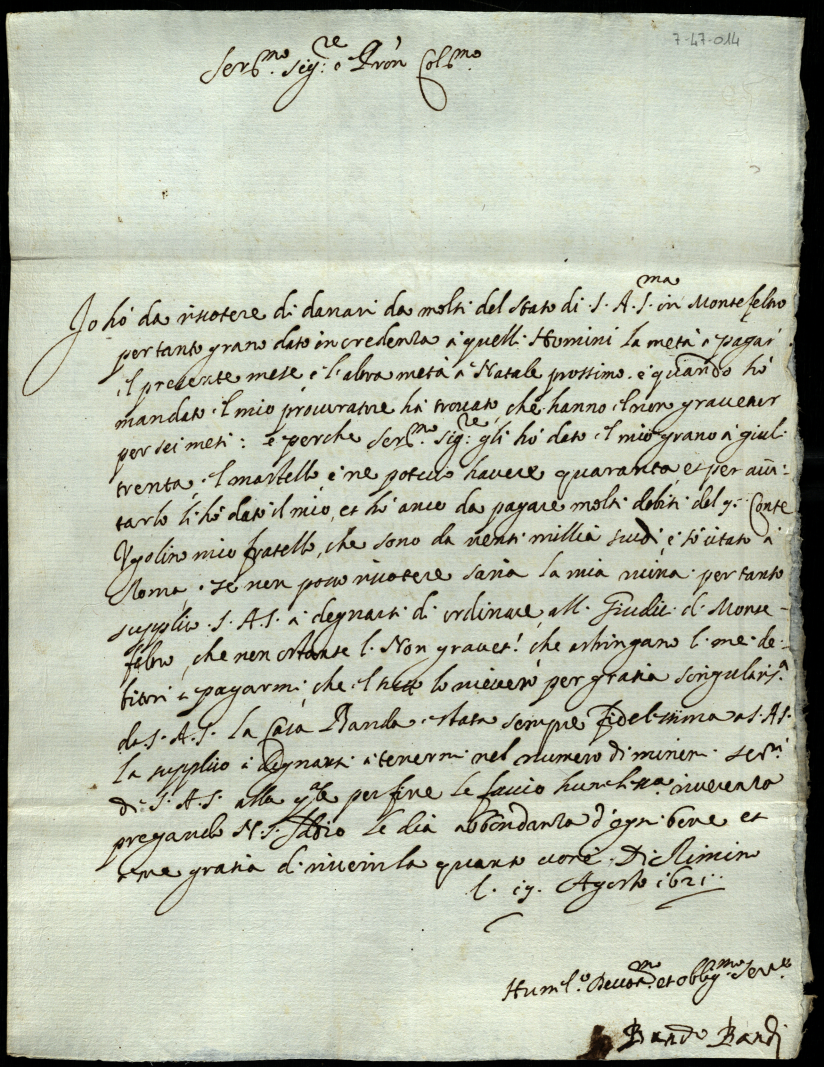 7-47-014
Ser.mo Sig.re e Pron Col.mo
Io hò da riscotere di danari da molti del stato di S. A. S.ma in Montefeltro
per tanto grano dato in credenza à quelli Homini la metà à pagar
il presente mese e l'altra metà à Natale prossimo. e quando hò
mandato il mio procuratore hà trovato, che hanno il non gravetur
per sei mesi: e perche Ser.mo Sig.re gli hò dato il mio grano à giuli
trenta, il martello e ne potevo havere quaranta, et per aiu-
tarlo li hò dato il mio, et hò anco da pagare molti debiti del q. Conte
Ugolino mio fratello, che sono da venti millia scudi, e sò citato à
Roma. se non posso riscotere saria la mia ruina. per tanto
supplico S. A. S. à degnarsi di ordinare alli Giudici di Monte-
feltro, che non ostante li Non gravet.r che astringano li mei de-
bitori à pagarmi, che il tutto lo riceverò per gratia singularis.a
da S. A. S. la Casa Banda è stata sempre fidelissima a S. A. S.
la supplico à degnarsi à tenermi nel numero di minori ser.ri
di S. A. S. alla q.le per fine le faccio humiliss.a riverenza
pregando N. S. Iddio le dia abbondanza d'ogni bene et
à me gratia di riverirla quanto vorei. Di Rimino
li 19 Agosto 1621.
Humil.o Devot.mo et oblig.mo Serv.re
Bando Bandi